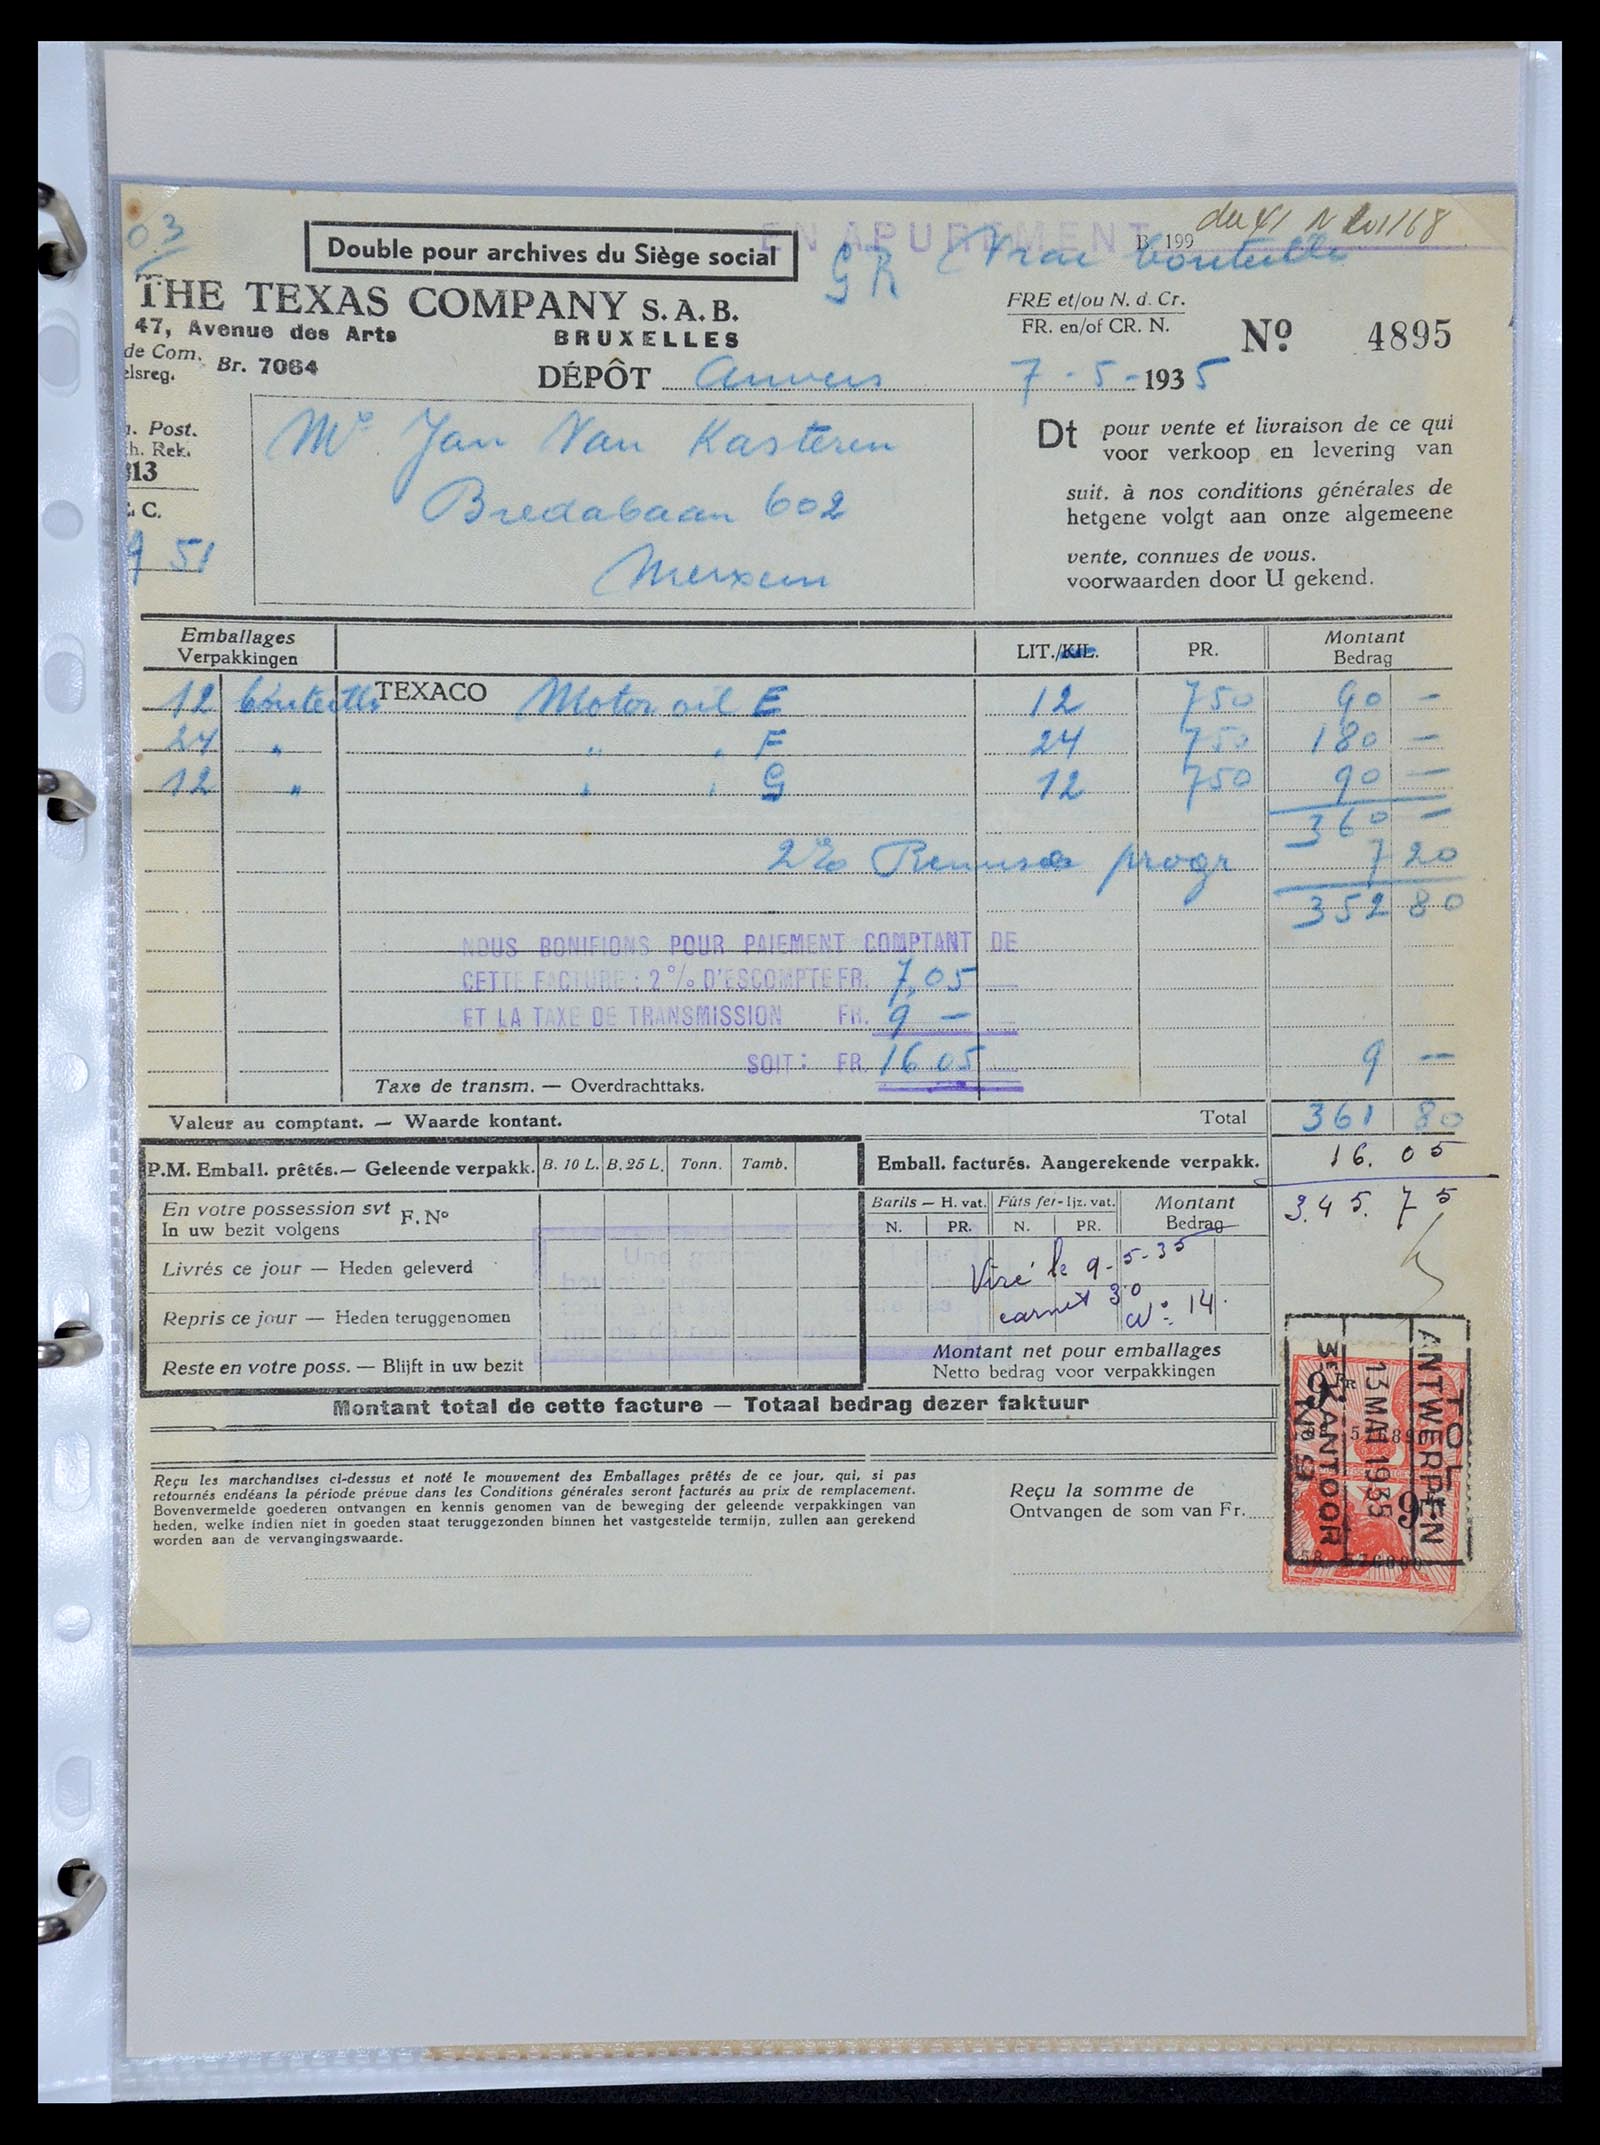 EN APUREMENT
du 41 N 201168
03
Double pour archives du Siège social
B. 199
G R
THE TEXAS COMPANY S.A.B.
47, Avenue des Arts BRUXELLES
de Com. Br. 7064
elsreg.
FRE et/ou N. d. Cr.
FR. en/of CR. N.
Nº 4895
DÉPÔT Anvers 7 - 5 - 1935
Mr Jan Van Kasteren
Bredabaan 602
Merxem
. Post.
h. Rek.
313
C.
9 51
Dt pour vente et livraison de ce qui
voor verkoop en levering van
suit. à nos conditions générales de
hetgene volgt aan onze algemeene
vente, connues de vous.
voorwaarden door U gekend.
Emballages
Verpakkingen
LIT./KIL. PR. Montant
Bedrag
12 bouteilles TEXACO Motor oil E 12 750 90 —
24 " " " F 24 750 180 —
12 " " " G 12 750 90 —
360 —
2% Remise progr 7 20
352 80
NOUS BONIFIONS POUR PAIEMENT COMPTANT DE
CETTE FACTURE : 2 % D'ESCOMPTE FR. 7,05
ET LA TAXE DE TRANSMISSION FR. 9 —
SOIT : FR. 16 05
Taxe de transm. — Overdrachttaks. 9 —
Valeur au comptant. — Waarde kontant. Total 361 80
P.M. Emball. prêtés.— Geleende verpakk. B. 10 L. B. 25 L. Tonn. Tamb.
Emball. facturés. Aangerekende verpakk. 16. 05
345. 75
En votre possession svt F. Nº
In uw bezit volgens
Barils — H. vat. Fûts fer- Ijz. vat. Montant
Bedrag
N. PR. N. PR.
Livrés ce jour — Heden geleverd
Viré le 9-5-35
carnet 30 Nº 14.
Repris ce jour — Heden teruggenomen
Reste en votre poss. — Blijft in uw bezit
Montant net pour emballages
Netto bedrag voor verpakkingen
Montant total de cette facture — Totaal bedrag dezer faktuur
Reçu les marchandises ci-dessus et noté le mouvement des Emballages prêtés de ce jour, qui, si pas
retournés endéans la période prévue dans les Conditions générales seront facturés au prix de remplacement.
Bovenvermelde goederen ontvangen en kennis genomen van de beweging der geleende verpakkingen van
heden, welke indien niet in goeden staat teruggezonden binnen het vastgestelde termijn, zullen aan gerekend
worden aan de vervangingswaarde.
Reçu la somme de
Ontvangen de som van Fr.
ANTWERPEN
13 MAI 1935
3E KANTOOR